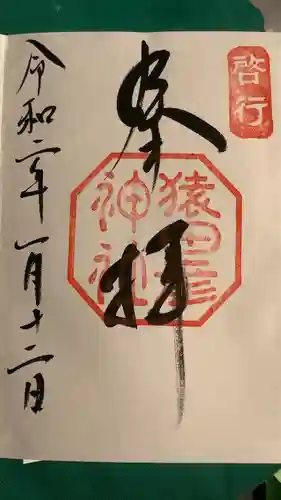 啓行
奉拝
猿田彦
神社
令和二年一月十二日